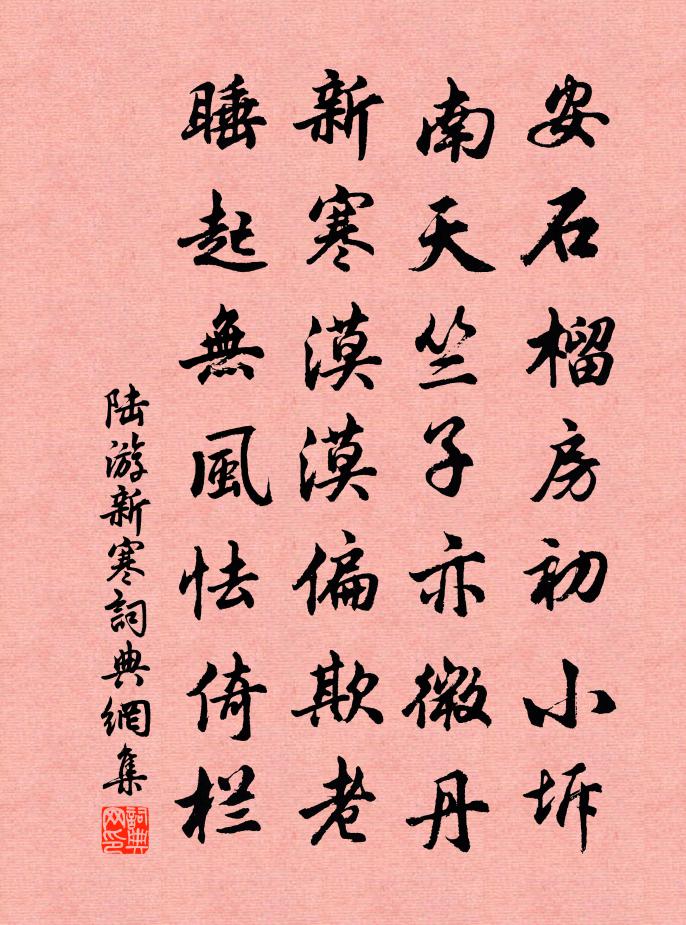 安石榴房初小坼
南天竺子亦微丹
新寒漠漠偏欺老
睡起無風怯倚栏
陆游新寒詞典網集
詞典网印